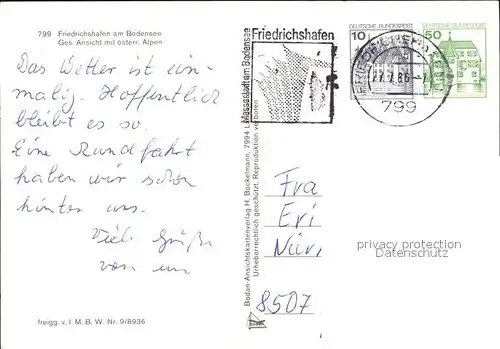 799 Friedrichshafen am Bodensee
Ges. Ansicht mit österr. Alpen
Das Wetter ist ein-
malig. Hoffentlich
bleibt es so.
Eine Rundfahrt
haben wir schon
hinter uns.
Viele Grüße
von
freigg. v. I. M. B. W. Nr. 9/8936
Bodan-Ansichtskartenverlag H. Bockelmann, 7994 L
Urheberrechtlich geschützt. Reproduktion verboten
Friedrichshafen
Messestadt am Bodensee
DEUTSCHE BUNDESPOST
10
DEUTSCHE BUNDESPOST
50
799
Fra
Eri
Nür
8507
privacy protection
Datenschutz